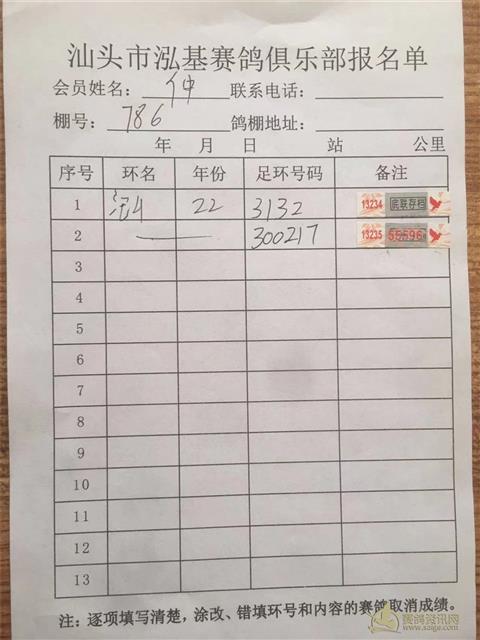 汕头市泓基赛鸽俱乐部报名单
会员姓名：仲 联系电话：
棚号：786 鸽棚地址：
年 月 日 站 公里
序号 环名 年份 足环号码 备注
1 泓 22 3132 13234 宾联存档
2 300217 13235 55596
3
4
5
6
7
8
9
10
11
12
13
注：逐项填写清楚，涂改、错填环号和内容的赛鸽取消成绩。
赛鸽资讯网
www.saige.com